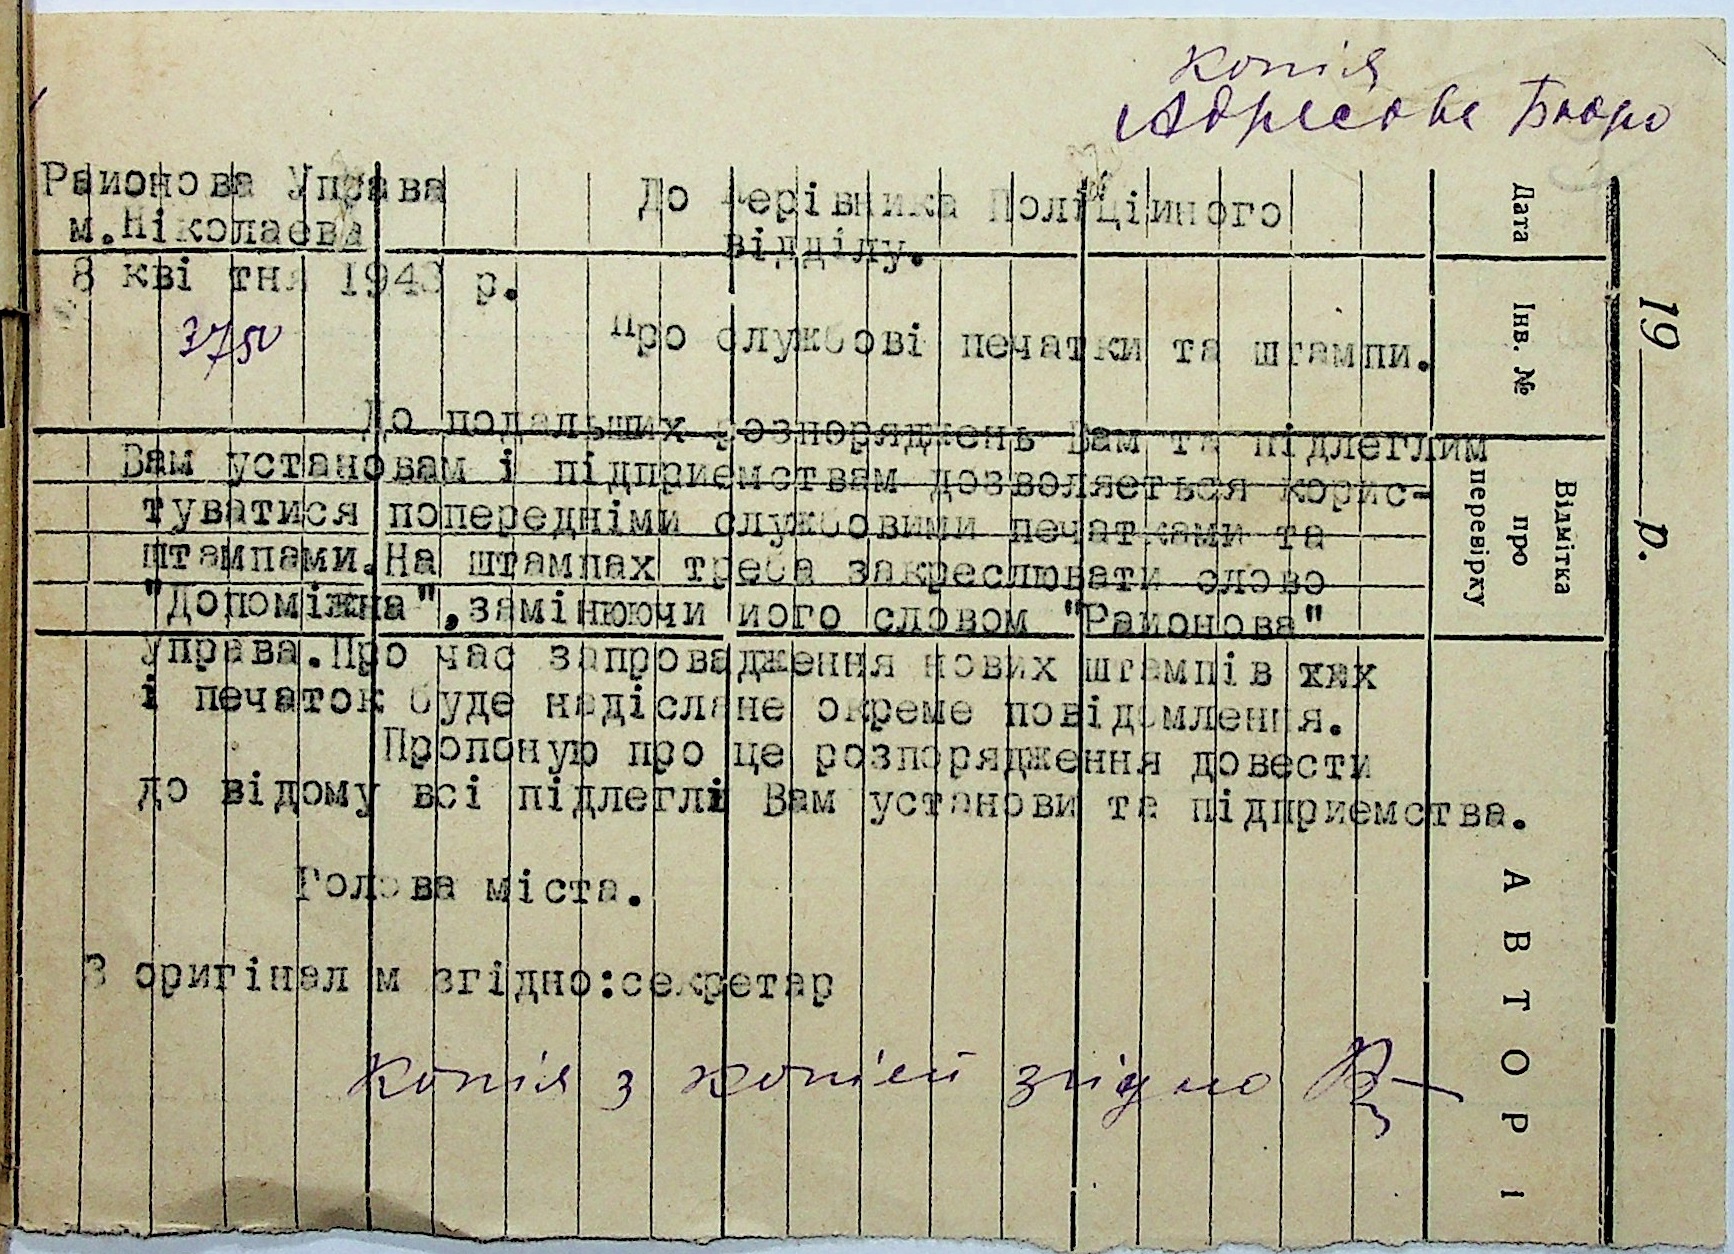 копія
Адресове Бюро
Районова Управа
м.Ніколаєва
8 квітня 1943 р.
3750
До Керівника Поліційного
відділу.
Про службові печатки та штампи.
До подальших розпоряджень Вам та підлеглим
Вам установам і підприємствам дозволяється корис-
туватися попередніми службовими печатками та
штампами.На штампах треба закреслювати слово
"Допоміжна",замінюючи його словом "Районова"
Управа.Про час запровадження нових штампів хях
і печаток буде надіслане окреме повідомлення.
Пропоную про це розпорядження довести
до відому всі підлеглі Вам установи та підприємства.
Голова міста.
З оригіналом згідно:секретар
копія з копією згідно
Дата
Інв. №
Відмітка
про
перевірку
АВТОРІ
19 р.